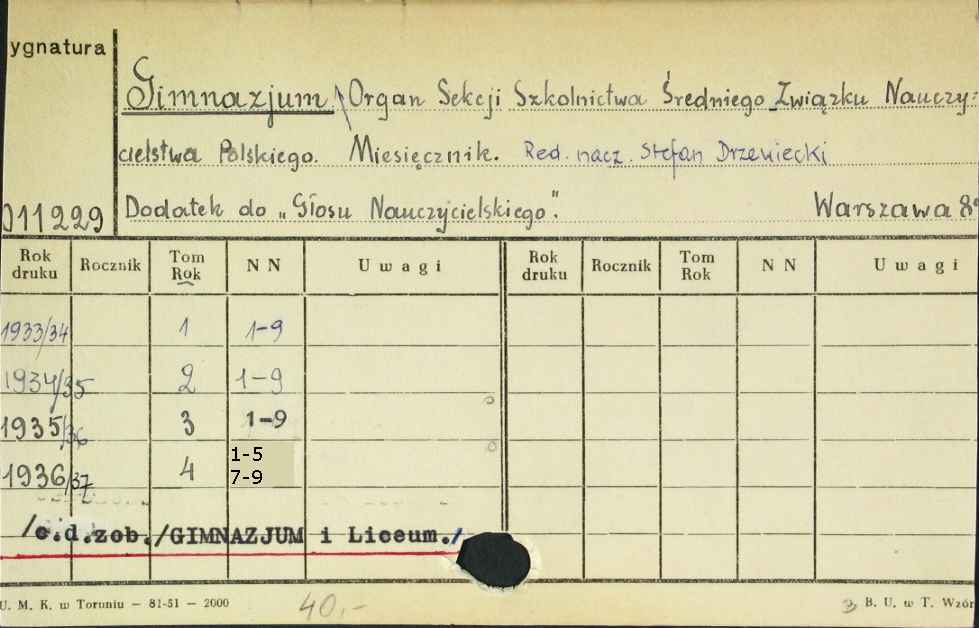 ygnatura
Gimnazjum / Organ Sekcji Szkolnictwa Średniego Związku Nauczy-
cielstwa Polskiego. Miesięcznik. Red. nacz. Stefan Drzewiecki
011229 Dodatek do „Głosu Nauczycielskiego". Warszawa 8°
Rok druku Rocznik Tom Rok N N Uwagi Rok druku Rocznik Tom Rok N N Uwagi
1933/34 1 1-9
1934/35 2 1-9
1935/36 3 1-9
1936/37 4 1-5
7-9
/c.d.zob./GIMNAZJUM i Liceum./
U. M. K. w Toruniu — 81-51 — 2000 40.- B. U. w T. Wzór